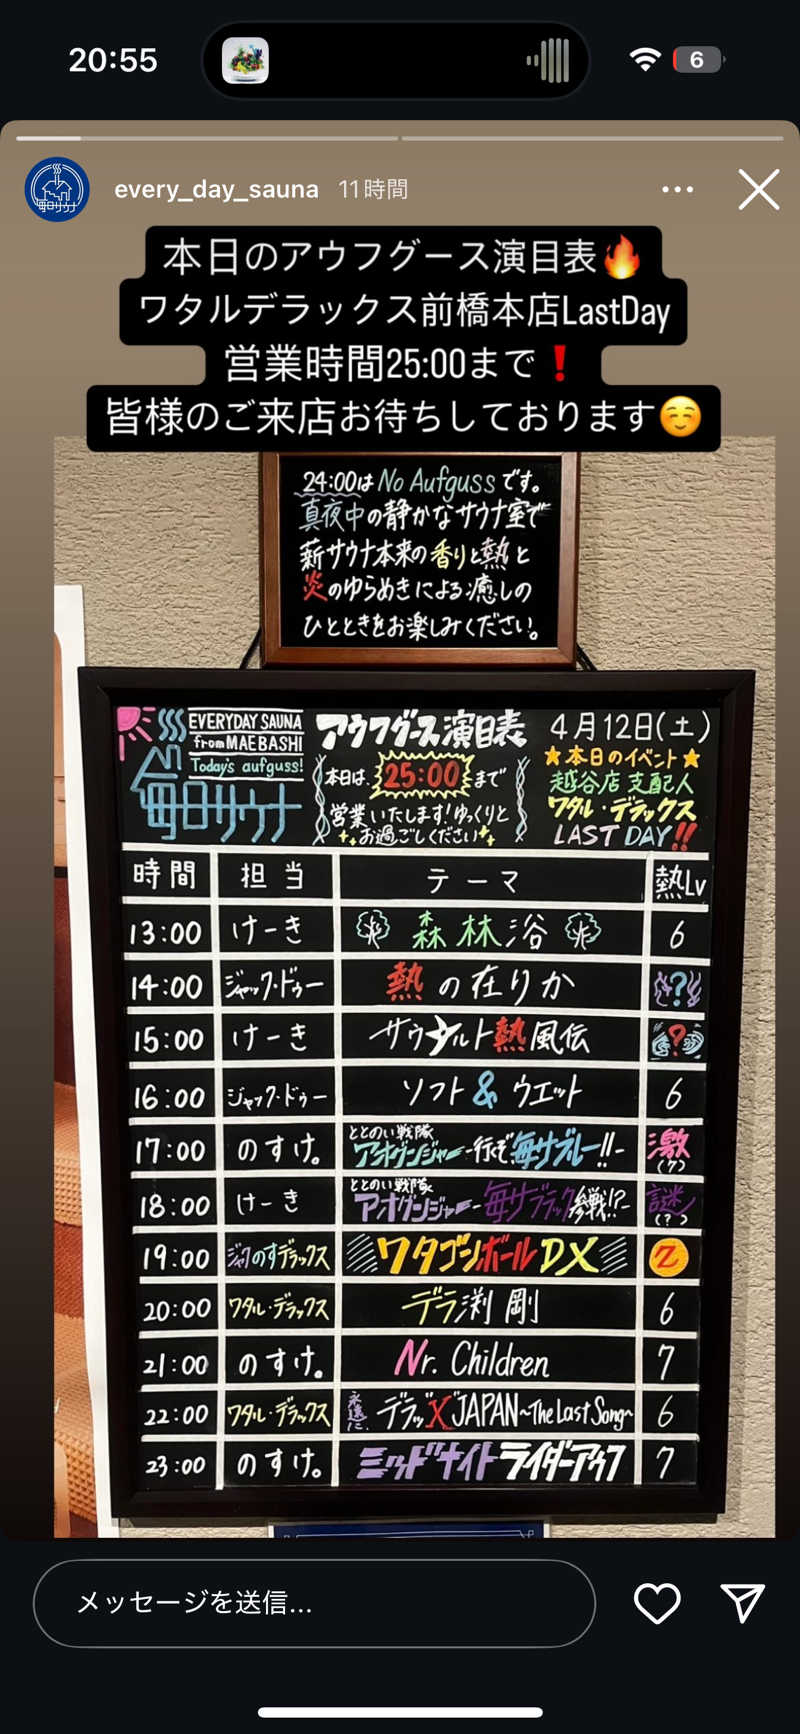 20:55
6
every_day_sauna 11時間
本日のアウフグース演目表🔥
ワタルデラックス前橋本店LastDay
営業時間25:00まで❗
皆様のご来店お待ちしております☺️
24:00は No Aufguss です。
真夜中の静かなサウナ室で
薪サウナ本来の香りと熱と
炎のゆらめきによる癒しの
ひとときをお楽しみください。
EVERYDAY SAUNA
from MAEBASHI
Today's aufguss!
毎日サウナ
アウフグース演目表
本日は、25:00まで
営業いたします!ゆっくりと
お過ごしください
4月12日(土)
★本日のイベント★
越谷店 支配人
ワタル・デラックス
LAST DAY!!
時間 担当 テーマ 熱Lv
13:00 けーき 森林浴 6
14:00 ジャック・ドゥー 熱の在りか ?
15:00 けーき サウナルト熱風伝 ?
16:00 ジャック・ドゥー ソフト&ウエット 6
17:00 のすけ。 ととのい戦隊 アオグンジャー -行くぞ、毎サブルー!!- 激(?)
18:00 けーき ととのい戦隊 アオグンジャー -毎サブラック参戦!?- 謎(?)
19:00 ジャクのすデラックス ワタゴンボールDX Z
20:00 ワタル・デラックス デラ渕 剛 6
21:00 のすけ。 Nr. Children 7
22:00 ワタル・デラックス 永遠に、デラッ"X"JAPAN~The Last Song~ 6
23:00 のすけ。 ミッドナイトライダーアウフ 7
メッセージを送信...